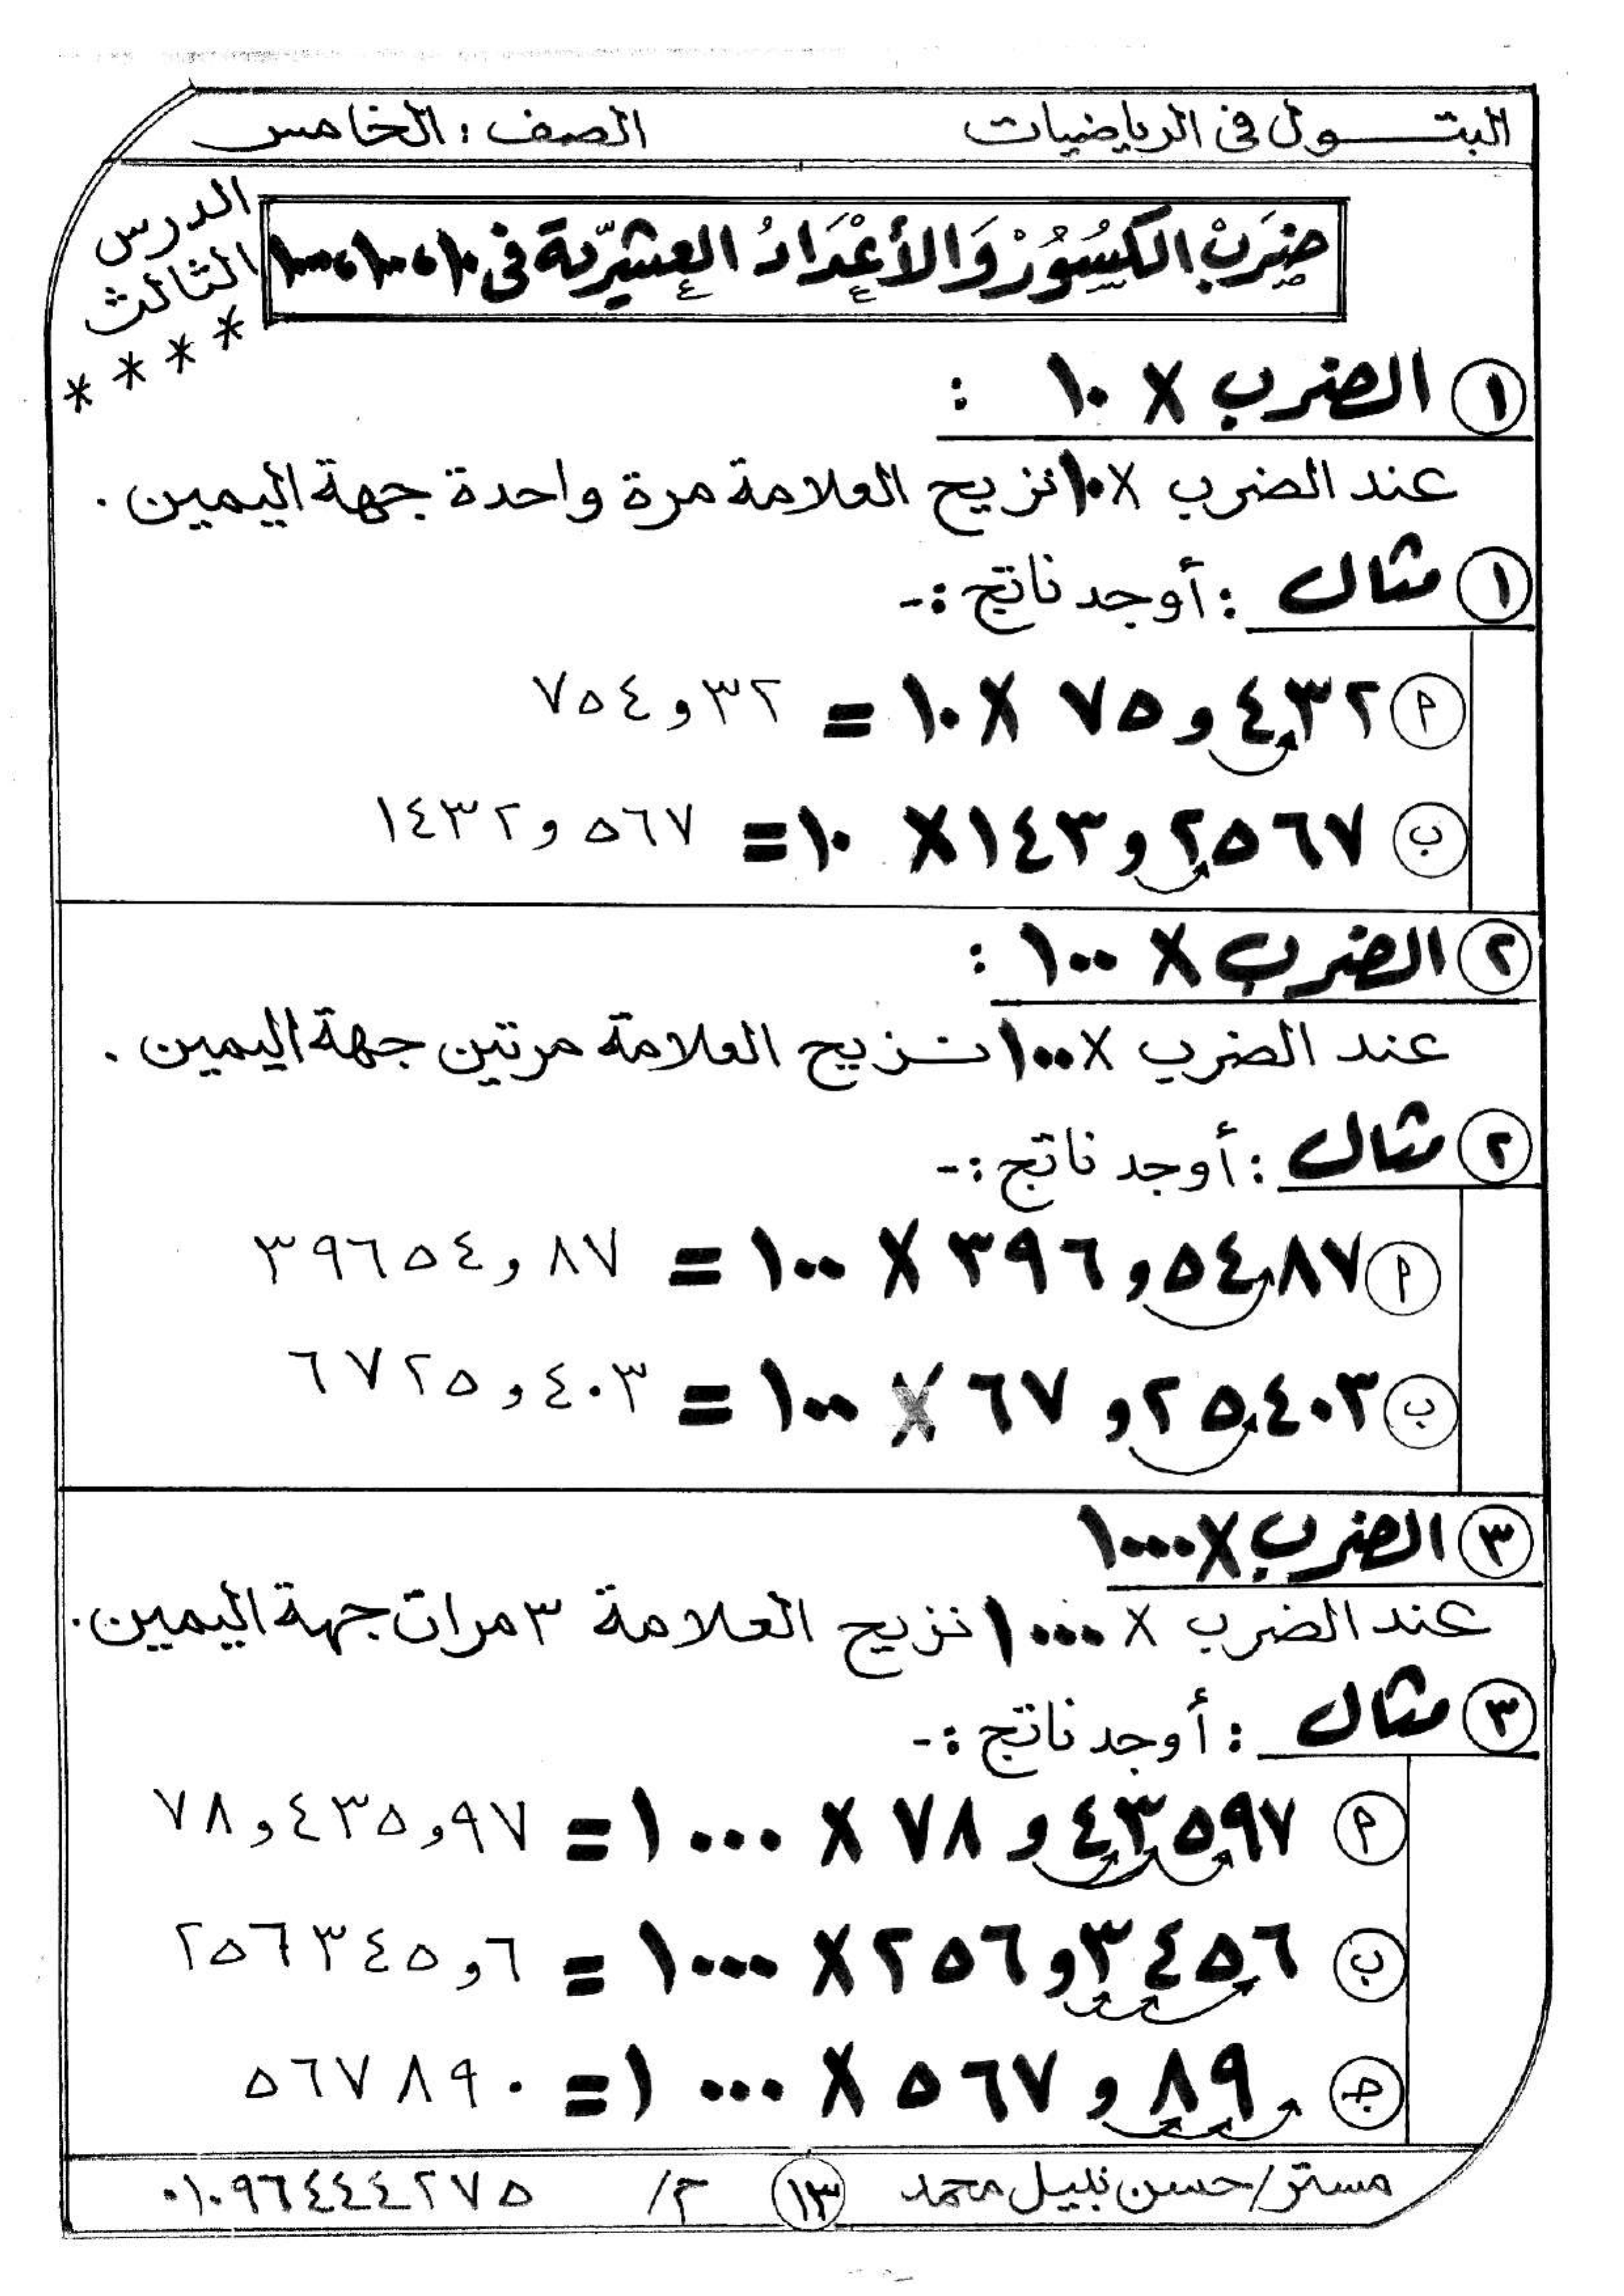 البتـــول فى الرياضيات الصف : الخامس
الدرس الثالث
****
ضَرْبُ الكُسُوْرْ وَالأعْدَادُ العشرّية فى ١٠ ، ١٠٠ ، ١٠٠٠
١ الضرب × ١٠ :
عند الضرب × ١٠ نزيح العلامة مرة واحدة جهة اليمين .
١ مثال : أوجد ناتج :-
أ ٧٥و٤٣٢ × ١٠ = ٧٥٤و٣٢
ب ١٤٣و٢٥٦٧ × ١٠ = ١٤٣٢و٥٦٧
٢ الضرب × ١٠٠ :
عند الضرب × ١٠٠ نـزيح العلامة مرتين جهة اليمين .
٢ مثال : أوجد ناتج :-
أ ٣٩٦و٥٤٨٧ × ١٠٠ = ٣٩٦٥٤و٨٧
ب ٦٧و٢٥٤٠٣ × ١٠٠ = ٦٧٢٥و٤٠٣
٣ الضرب × ١٠٠٠
عند الضرب × ١٠٠٠ نزيح العلامة ٣ مرات جهة اليمين .
٣ مثال : أوجد ناتج :-
أ ٧٨و٤٣٥٩٧ × ١٠٠٠ = ٧٨و٤٣٥و٩٧
ب ٢٥٦و٣٤٥٦ × ١٠٠٠ = ٢٥٦٣٤٥و٦
جـ ٥٦٧و٨٩ × ١٠٠٠ = ٥٦٧٨٩٠
مستر/حسن نبيل محمد ١٣ م/ ٠١٠٩٦٤٤٤٢٧٥